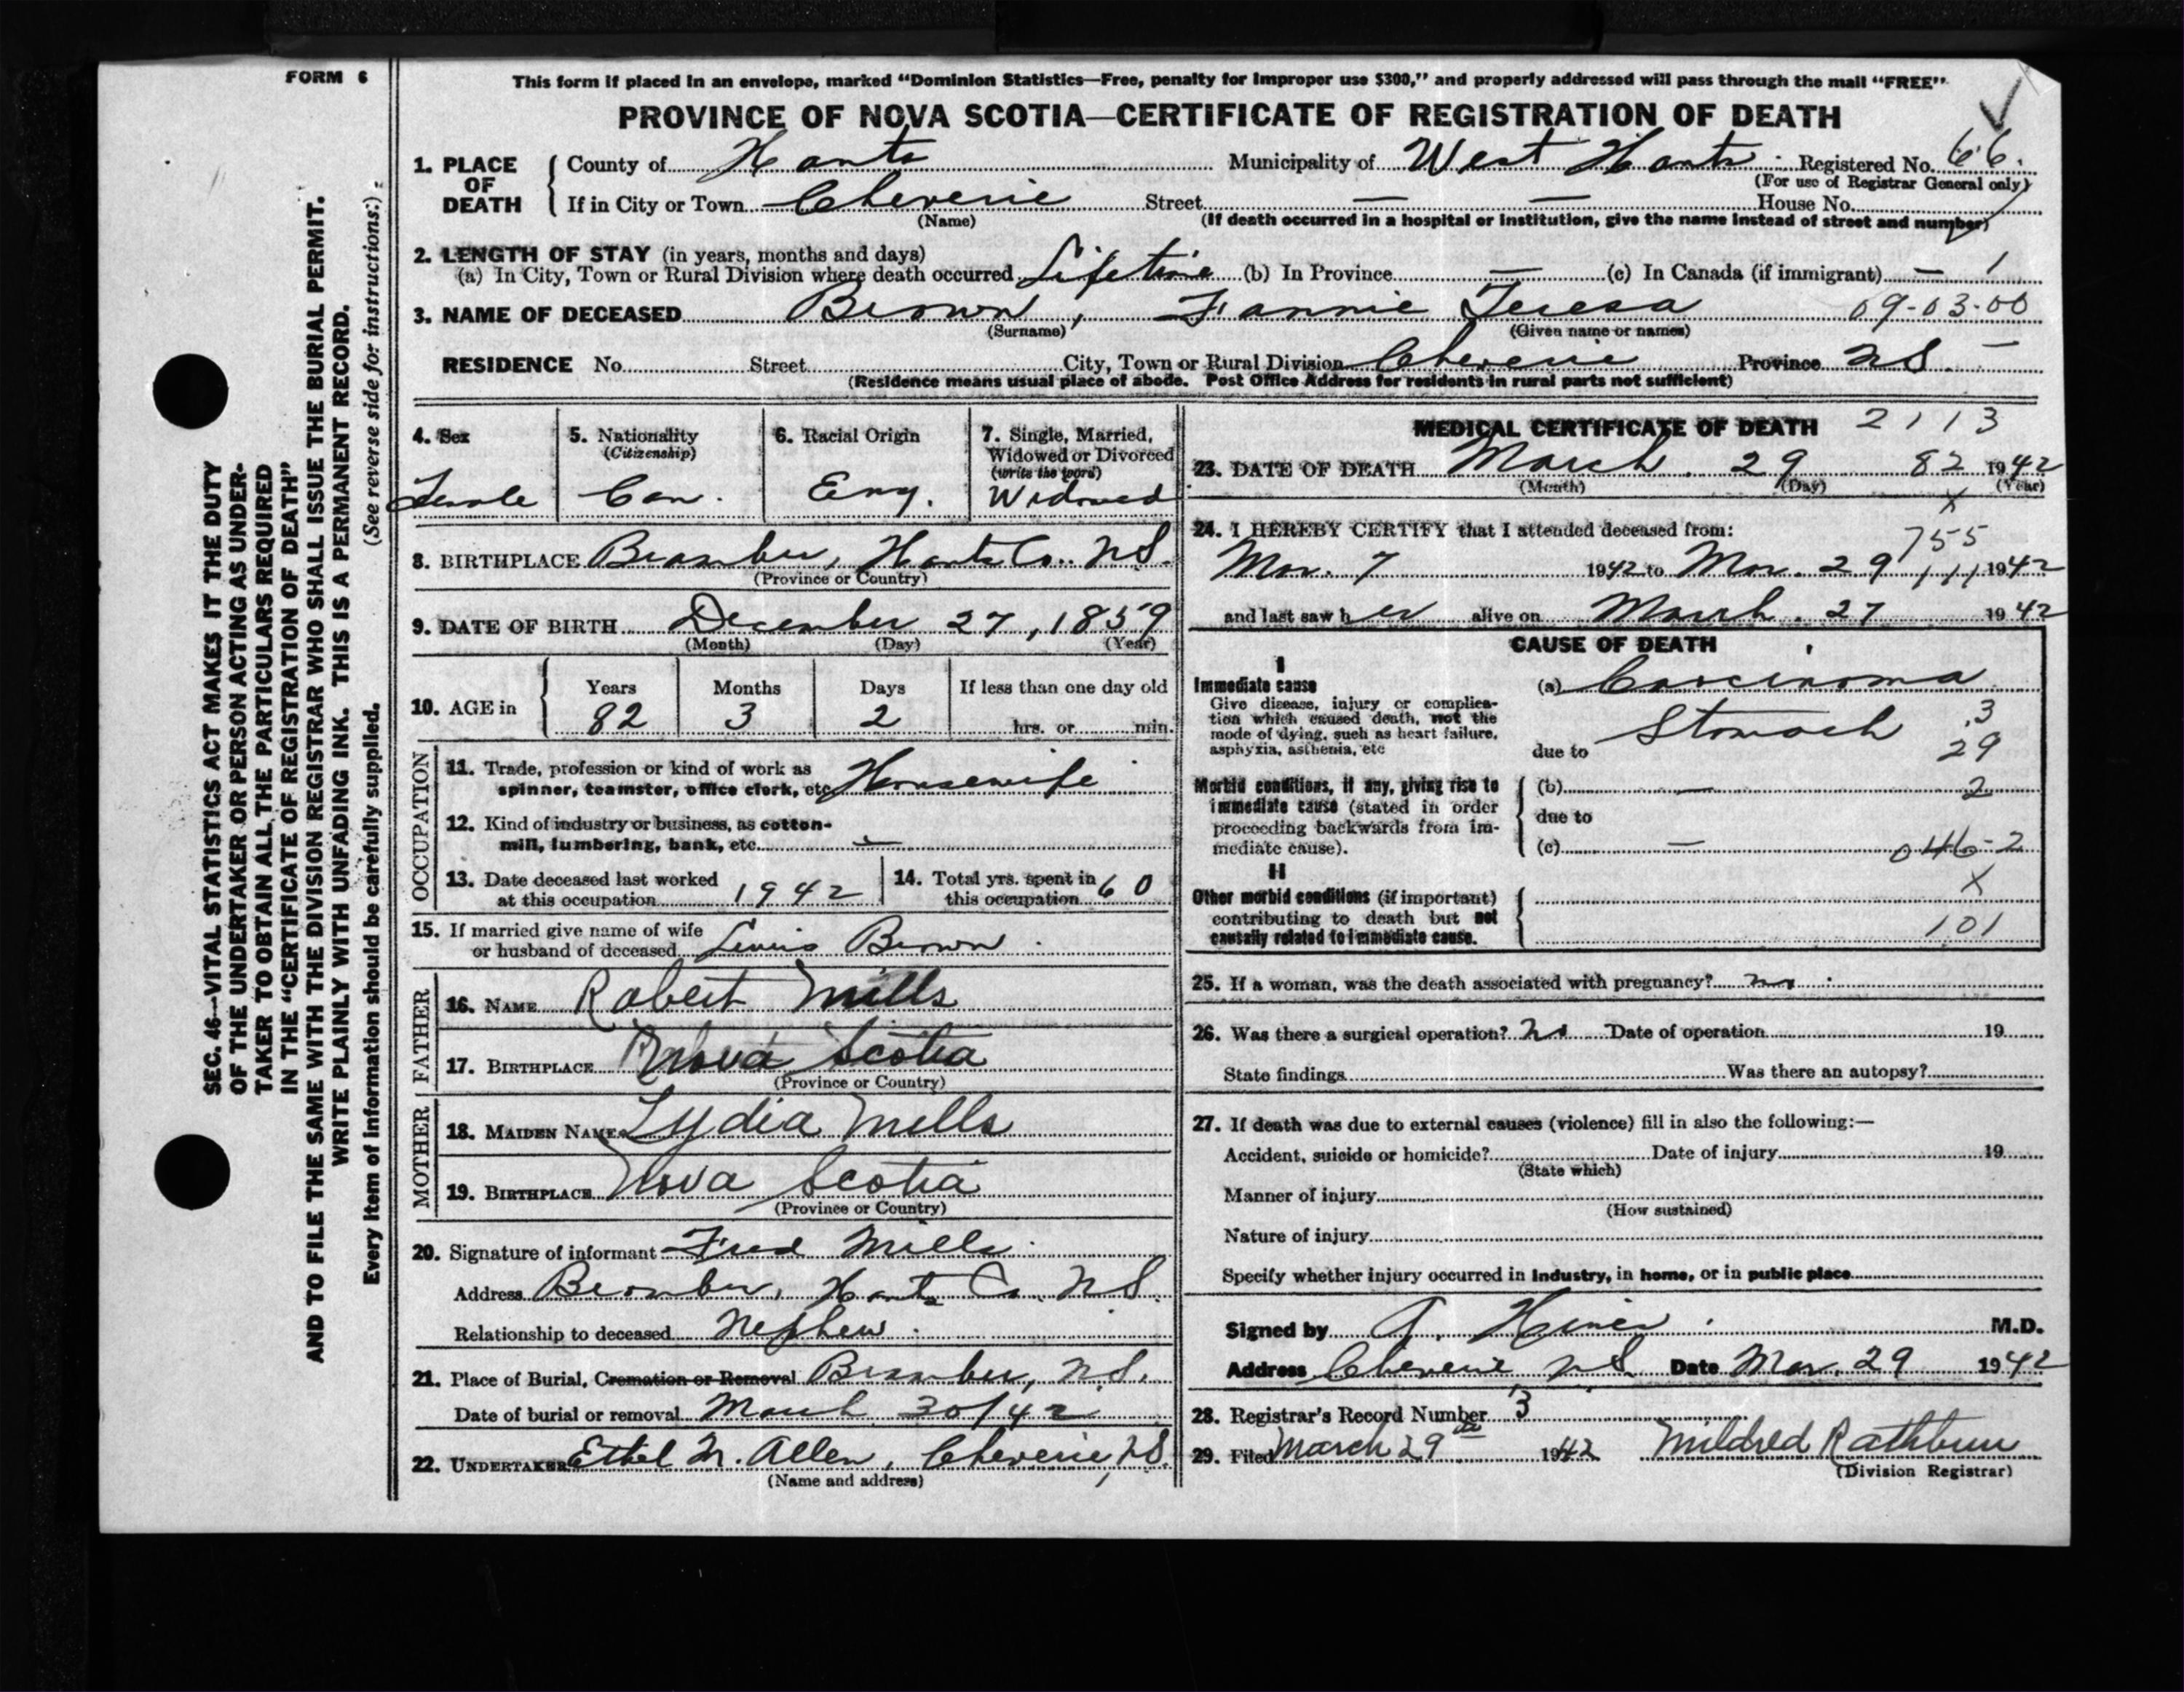 FORM 6
This form if placed in an envelope, marked “Dominion Statistics—Free, penalty for improper use $300,” and properly addressed will pass through the mail “FREE”
PROVINCE OF NOVA SCOTIA—CERTIFICATE OF REGISTRATION OF DEATH
1. PLACE OF DEATH County of Hants Municipality of West Hants Registered No. 66.
(For use of Registrar General only)
If in City or Town Cheverie Street — — House No.
(Name) (If death occurred in a hospital or institution, give the name instead of street and number)
2. LENGTH OF STAY (in years, months and days)
(a) In City, Town or Rural Division where death occurred Lifetime (b) In Province — (c) In Canada (if immigrant) — 1
3. NAME OF DECEASED Brown, Fannie Teresa 09-03-00
(Surname) (Given name or names)
RESIDENCE No. Street City, Town or Rural Division Cheverie Province N.S. —
(Residence means usual place of abode. Post Office Address for residents in rural parts not sufficient)
4. Sex
Female
5. Nationality
(Citizenship)
Can.
6. Racial Origin
Eng.
7. Single, Married,
Widowed or Divorced
(write the word)
Widowed
8. BIRTHPLACE Bramber, Hants Co. N.S.
(Province or Country)
9. DATE OF BIRTH December 27, 1859
(Month) (Day) (Year)
10. AGE in Years Months Days If less than one day old
82 3 2 hrs. or min.
OCCUPATION
11. Trade, profession or kind of work as
spinner, teamster, office clerk, etc. Housewife
12. Kind of industry or business, as cotton-
mill, lumbering, bank, etc. —
13. Date deceased last worked
at this occupation 1942
14. Total yrs. spent in
this occupation 60
15. If married give name of wife
or husband of deceased Lewis Brown
FATHER
16. NAME Robert Mills
17. BIRTHPLACE Nova Scotia
(Province or Country)
MOTHER
18. MAIDEN NAME Lydia Mills
19. BIRTHPLACE Nova Scotia
(Province or Country)
20. Signature of informant Fred Mills
Address Bramber, Hants Co. N.S.
Relationship to deceased Nephew.
21. Place of Burial, Cremation or Removal Bramber, N.S.
Date of burial or removal March 30/42
22. UNDERTAKER Ethel M. Allen, Cheverie, N.S.
(Name and address)
MEDICAL CERTIFICATE OF DEATH 2113
23. DATE OF DEATH March 29 82 1942
(Month) (Day) (Year)
x
24. I HEREBY CERTIFY that I attended deceased from:
755
Mar. 7 1942 to Mar. 29 1942
and last saw her alive on March 27 1942
CAUSE OF DEATH
I
Immediate cause
Give disease, injury or complica-
tion which caused death, not the
mode of dying, such as heart failure,
asphyxia, asthenia, etc
(a) Carcinoma
Stomach 3
due to 29
Morbid conditions, if any, giving rise to
immediate cause (stated in order
proceeding backwards from im-
mediate cause).
(b) — 2
due to
(c) — 046-2
II
Other morbid conditions (if important)
contributing to death but not
causally related to immediate cause.
x
101
25. If a woman, was the death associated with pregnancy? no
26. Was there a surgical operation? no Date of operation 19
State findings Was there an autopsy?
27. If death was due to external causes (violence) fill in also the following:—
Accident, suicide or homicide? Date of injury 19
(State which)
Manner of injury
(How sustained)
Nature of injury
Specify whether injury occurred in industry, in home, or in public place
Signed by A. M.D.
Address Cheverie N.S. Date Mar. 29 1942
28. Registrar's Record Number 3
29. Filed March 29th 1942 Mildred Rathbun
(Division Registrar)
SEC. 46—VITAL STATISTICS ACT MAKES IT THE DUTY
OF THE UNDERTAKER OR PERSON ACTING AS UNDER-
TAKER TO OBTAIN ALL THE PARTICULARS REQUIRED
IN THE “CERTIFICATE OF REGISTRATION OF DEATH”
AND TO FILE THE SAME WITH THE DIVISION REGISTRAR WHO SHALL ISSUE THE BURIAL PERMIT.
WRITE PLAINLY WITH UNFADING INK. THIS IS A PERMANENT RECORD.
Every item of information should be carefully supplied. (See reverse side for instructions:)